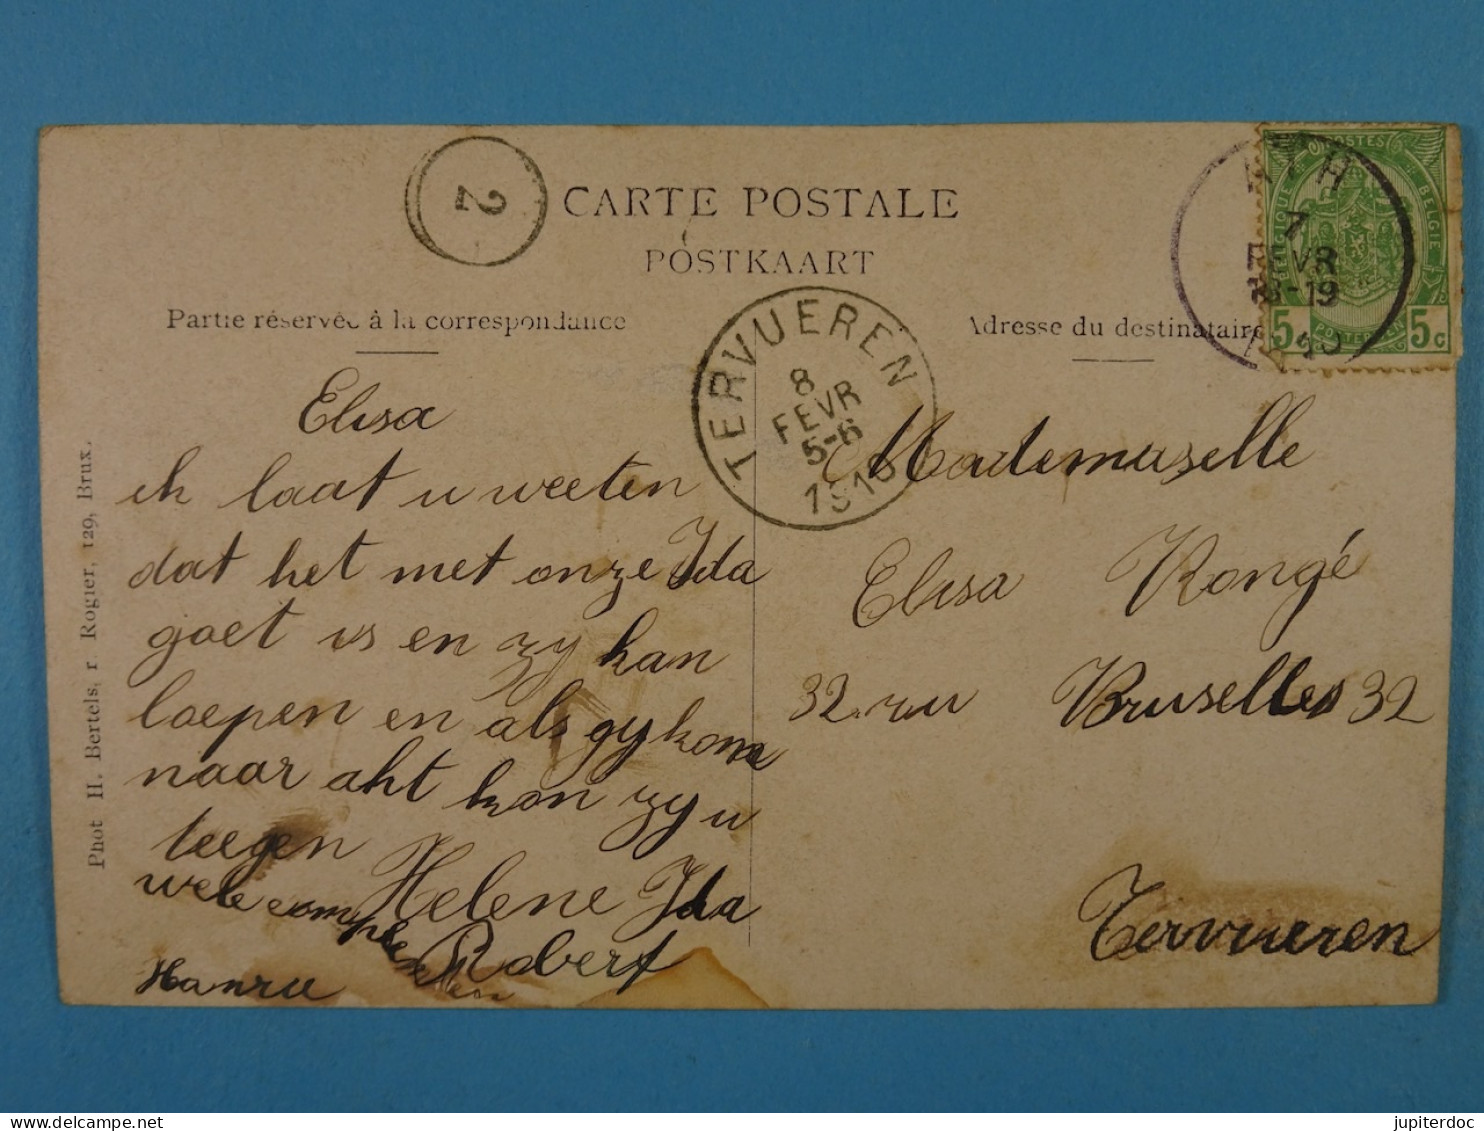 2
CARTE POSTALE
POSTKAART
Partie réservée à la correspondance
Adresse du destinataire
POSTES
BELGIE
5 POSTERIJEN 5c
ATH
7
FEVR
18-19
TERVUEREN
8
FEVR
5-6
1910
Phot H. Bertels, r. Rogier, 129, Brux.
Elisa
ik laat u weeten
dat het met onze Ida
goet is en zy kan
loepen en als gy kom
naar aht kon zy u
teegen
Helene Ida
Robert
Mademuselle
Elisa Rongé
32 ru Bruselles 32
Tervueren
jupiterdoc
delcampe.net